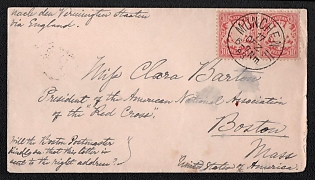 nach den Vereinigten Staaten
via England.
MÜNCHEN
Miss Clara Barton
President of the American National Association
of the "Red Cross"
Boston
Mass
United States of America.
Will the Boston Postmaster
kindly see that this letter is
sent to the right address?